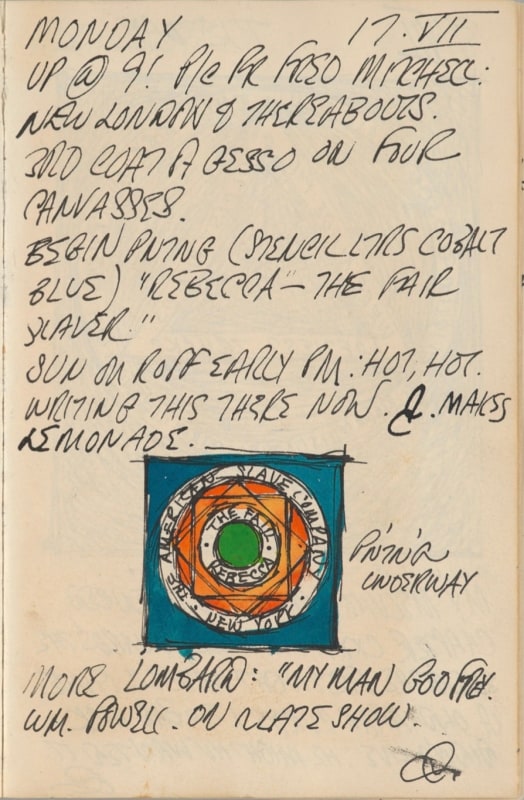 MONDAY 17.VII
UP @ 9! P/C FR FRED MITCHELL:
NEW LONDON & THEREABOUTS.
3RD COAT OF GESSO ON FOUR
CANVASSES.
BEGIN PNTNG (STENCIL LTRS COBALT
BLUE) "REBECCA" — THE FAIR
SLAVER."
SUN ON ROOF EARLY PM: HOT, HOT.
WRITING THIS THERE NOW. MAKES
LEMONADE.
AMERICAN SLAVE COMPANY
THE FAIR
REBECCA
NEW YORK
PNTNG
UNDERWAY
MORE LOMBARD: "MY MAN GODFREY.
WM. POWELL. ON LATE SHOW.